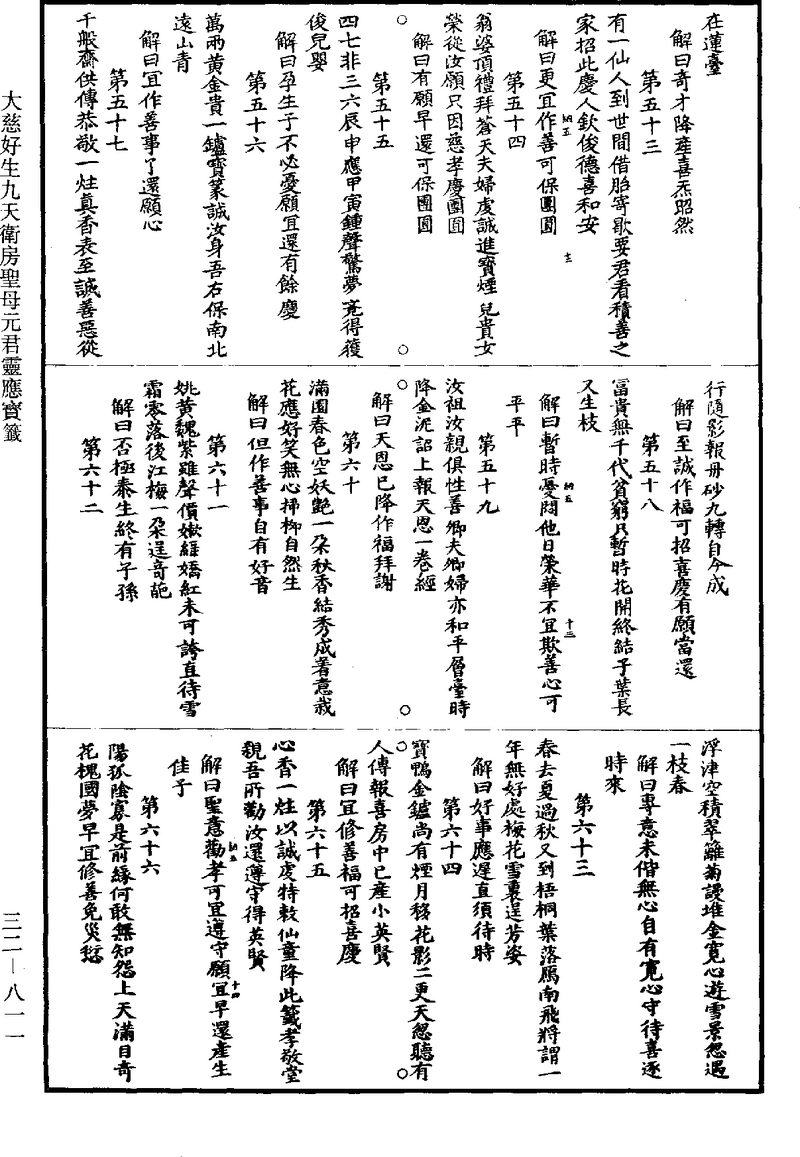 在蓮臺
解曰奇才降産喜炁昭然
第五十三
有一仙人到世間借胎寄歇要君看積善之
家招此慶人欽俊德喜和安
解曰更宜作善可保團圓
第五十四
翁婆頂禮拜蒼天夫婦虔誠進寳煙兒貴女
榮從汝願只因慈孝慶團圓
解曰有願早還可保團圓
第五十五
四七非三六辰申應甲寅鍾聲驚夢亮得獲
俊兒嬰
解曰孕生子不必憂願宜還有餘慶
第五十六
萬兩黄金貴一鑪寳篆誠汝身吾右保南北
遠山青
解曰宜作善事了還願心
第五十七
千般齋供傳恭敬一炷真香表至誠善惡從
行隨影報丹砂九轉自今成
解曰至誠作福可招喜慶有願當還
第五十八
富貴無千代貧窮只暫時花開終結子葉長
又生枝
解曰暫時憂悶他日榮華不宜欺善心可
平平
第五十九
汝祖汝親俱性善卿夫卿婦亦和平層臺時
降金泥詔上報天恩一卷經
解曰天恩已降作福拜謝
第六十
滿園春色空妖艷一朶秋香結秀成着意栽
花應好笑無心插柳自然生
解曰但作善事自有好音
第六十一
姚黄魏紫雖聲價嫩緑嬌紅未可誇直待雪
霜零落後江梅一朶逞奇葩
解曰否極泰生終有子孫
第六十二
浮津空積翠籬菊謾堆金寛心遊雪景忽遇
一枝春
解曰專意未偕無心自有寛心守待喜逐
時來
第六十三
春去夏過秋又到梧桐葉落鴈南飛將謂一
年無好處梅花雪裏逞芳姿
解曰好事應遲直須待時
第六十四
寳鴨金鑪尚有煙月移花影二更天忽聽有
人傳報喜房中已産小英賢
解曰宜修善福可招喜慶
第六十五
心香一炷以誠虔特敕仙童降此籤孝敬堂
親吾所勸汝還遵守得英賢
解曰聖意勸孝可宜遵守願宜早還產生
佳子
第六十六
陽孤陰寡是前緣何敢無知怨上天滿目奇
花槐國夢早宜修善免災愆
大慈好生九天衛房聖母元君靈應寳籤
三二—八一一